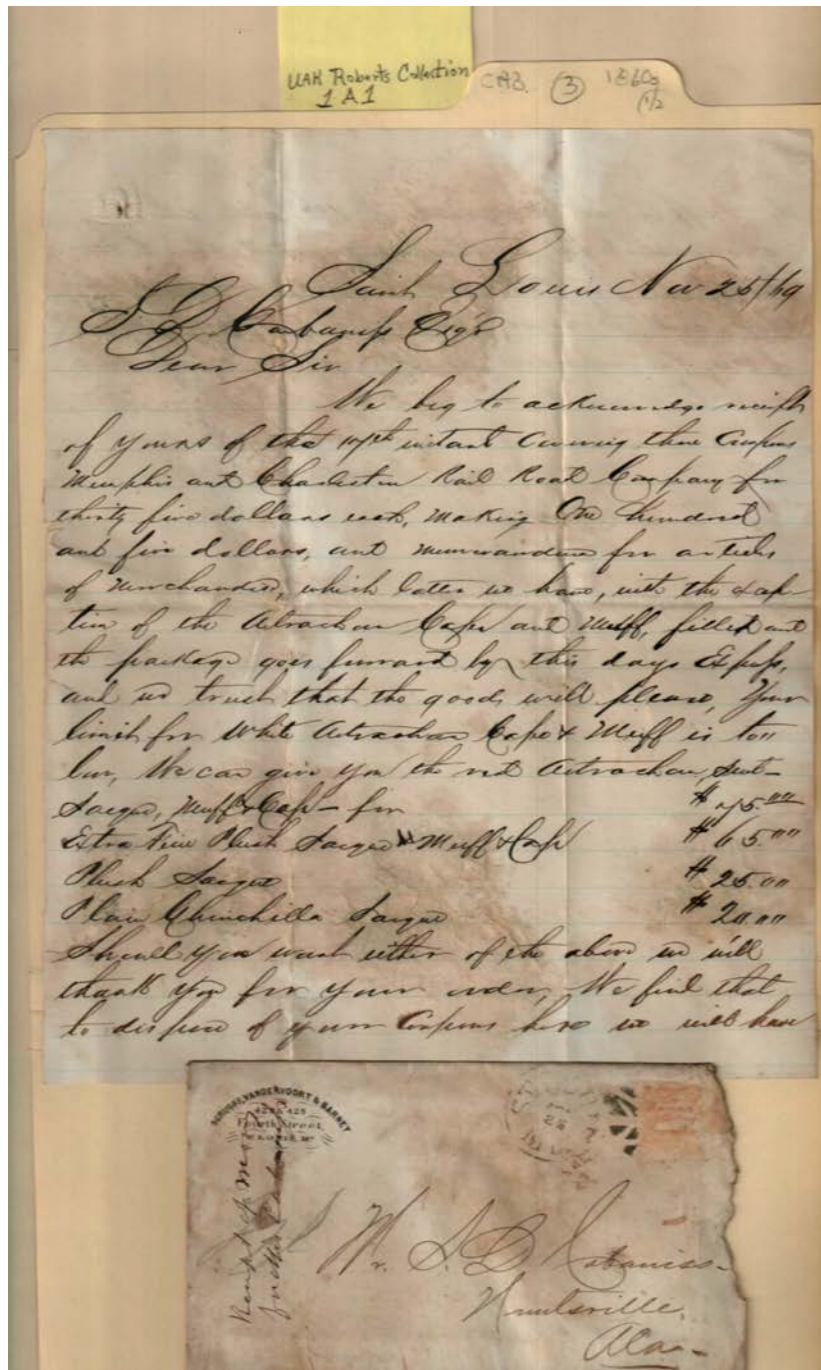 UAH Roberts Collection
1A1
CAB. 3 1860s
(1/2
Saint Louis Nov 25/69
S D Cabaniss Esqr
Dear Sir
We beg to acknowledge receipt
of yours of the instant covering three Coupons
Memphis and Charleston Rail Road Company for
thirty five dollars each, making One hundred
and five dollars, and memorandum for articles
of merchandise, which latter we have, with the excep-
tion of the Astrachan Cape and Muff, filled and
the package goes forward by this days Express,
and we trust that the goods will please, Your
limit for White Astrachan Cape & Muff is too
low, We can give you the Astrachan,
Sacque, Muff & Cap - for $ 75.00
Extra Fine Plush Sacque Muff & Cap $ 65.00
Plush Sacque $ 25.00
Plain Chinchilla Sacque $ 20.00
Should you want either of the above we will
thank you for your order, We find that
to dispose of your Coupons here we will have
SCRUGGS, VANDERVOORT & BARNEY
423 & 425
Fourth Street
ST LOUIS, MO
Mr. S. D. Cabaniss
Huntsville,
Ala